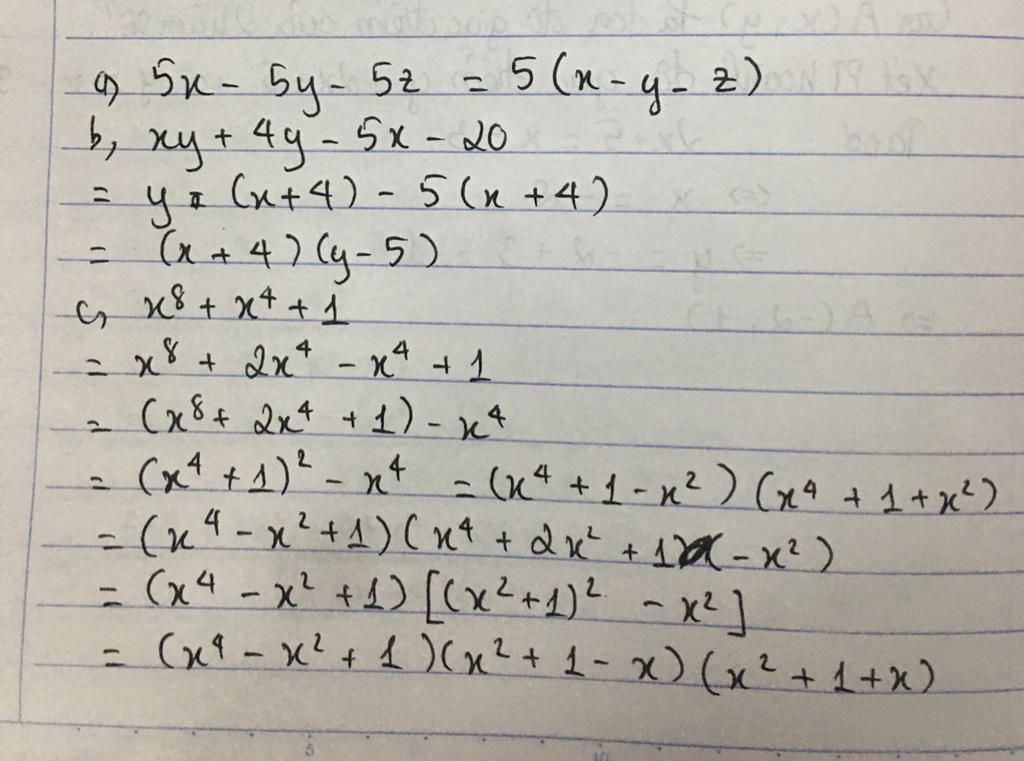 a, 5x - 5y - 5z = 5 (x - y - z)
b, xy + 4y - 5x - 20
= y (x+4) - 5 (x + 4)
= (x + 4) (y - 5)
c, x⁸ + x⁴ + 1
= x⁸ + 2x⁴ - x⁴ + 1
= (x⁸ + 2x⁴ + 1) - x⁴
= (x⁴ + 1)² - x⁴ = (x⁴ + 1 - x²) (x⁴ + 1 + x²)
= (x⁴ - x² + 1) (x⁴ + 2x² + 1 - x²)
= (x⁴ - x² + 1) [(x² + 1)² - x²]
= (x⁴ - x² + 1) (x² + 1 - x) (x² + 1 + x)
5
10